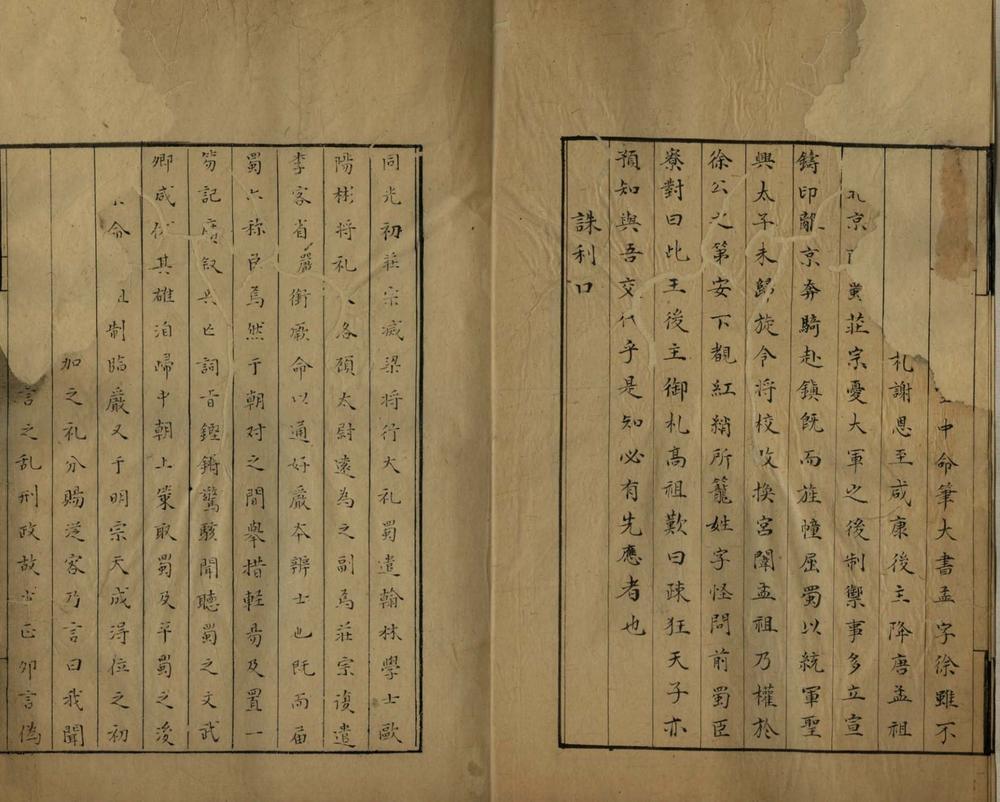 中命筆大書孟字徐雖不
札謝恩至咸康後主降唐孟祖
京 莊宗憂大軍之後制禦事多立宣
鑄印離京奔騎赴鎮既而旌幢屆蜀以統軍聖
興太子未歸旋令將校改換宮闈孟祖乃權於
徐公之第安下覩紅綃所籠姓字怪問前蜀臣
寮對曰此王後主御札高祖歎曰疎狂天子亦
預知與吾交代乎是知必有先應者也
誅利口
同光初莊宗滅梁將行大礼蜀遣翰林學士歐
陽彬將礼 洛領太尉遠為之副焉莊宗復遣
李客省嚴銜厥命以通好嚴本辨士也既而屆
蜀 称臣焉然于朝对之間舉措輕昜及置一
笏記 叙 詞旨鏗鏘驚駭聞聽蜀之文武
卿咸 其雄洎歸中朝上策取蜀及平蜀之後
命 制臨嚴又于明宗天成淂位之初
加之礼分賜逆家乃言曰我聞
言之乱刑政故 正卯言偽